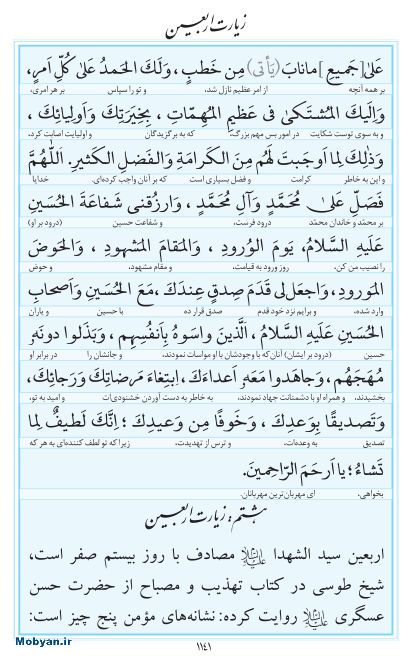 زیارت اربعین
عَلىٰ [جَمیعِ] مانابَ (یَأتی) مِن خَطبٍ، وَلَكَ الحَمدُ عَلىٰ كُلِّ اَمرٍ،
بر همه آنچه از امر عظیم نازل شد، و تو را سپاس بر هر امری،
وَاِلَیكَ المُشتَكىٰ فی عَظیمِ المُهِمّاتِ، بِخِیَرَتِكَ وَاَولِیائِكَ،
و به سوی توست شکایت در امور بس مهم بزرگ، که به برگزیدگان و اولیایت اصابت کرد،
وَذٰلِكَ لِما اَوجَبتَ لَهُم مِنَ الكَرامَةِ وَالفَضلِ الكَثیرِ. اَللّٰهُمَّ
و این به خاطر کرامت و فضل بسیاری است که بر آنان واجب کرده‌ای. خدایا
فَصَلِّ عَلىٰ مُحَمَّدٍ وَآلِ مُحَمَّدٍ، وَارزُقنی شَفاعَةَ الحُسَینِ
بر محمّد و خاندان محمّد درود فرست، و شفاعت حسین (درود بر او)
عَلَیهِ السَّلامُ، یَومَ الوُرودِ، وَالمَقامَ المَشهودَ، وَالحَوضَ
را نصیب من کن. روز ورود به قیامت، و مقام مشهود، و حوض
المَورودَ، وَاجعَل لی قَدَمَ صِدقٍ عِندَكَ، مَعَ الحُسَینِ وَاَصحابِ
وارد شده، و برایم نزد خود قدم صدق قرار ده با حسین و یاران
الحُسَینِ عَلَیهِ السَّلامُ، الَّذینَ واسَوهُ بِاَنفُسِهِم، وَبَذَلوا دونَهٗ
حسین (درود بر ایشان) آنان که با وجودشان با او مواسات نمودند، و جانشان را در برابر او
مُهَجَهُم، وَجاهَدوا مَعَهٗ اَعداءَكَ، اِبتِغاءَ مَرضاتِكَ وَرَجائِكَ،
بخشیدند، و همراه او با دشمنانت جهاد نمودند، به خاطر به دست آوردن خشنودی‌ات و امید به تو،
وَتَصدیقًا بِوَعدِكَ، وَخَوفًا مِن وَعیدِكَ؛ اِنَّكَ لَطیفٌ لِما
تصدیق به وعده‌ات، و ترس از تهدیدت. زیرا که تو لطف کننده‌ای به هر که
تَشاءُ؛ یا اَرحَمَ الرّاحِمینَ.
بخواهی. ای مهربان‌ترین مهربانان.
هشتم: زیارت اربعین
اربعین سید الشهدا علیه‌السلام مصادف با روز بیستم صفر است،
شیخ طوسی در کتاب تهذیب و مصباح از حضرت حسن
عسگری علیه‌السلام روایت کرده: نشانه‌های مؤمن پنج چیز است:
۱۱۴۱
Mobyan.ir